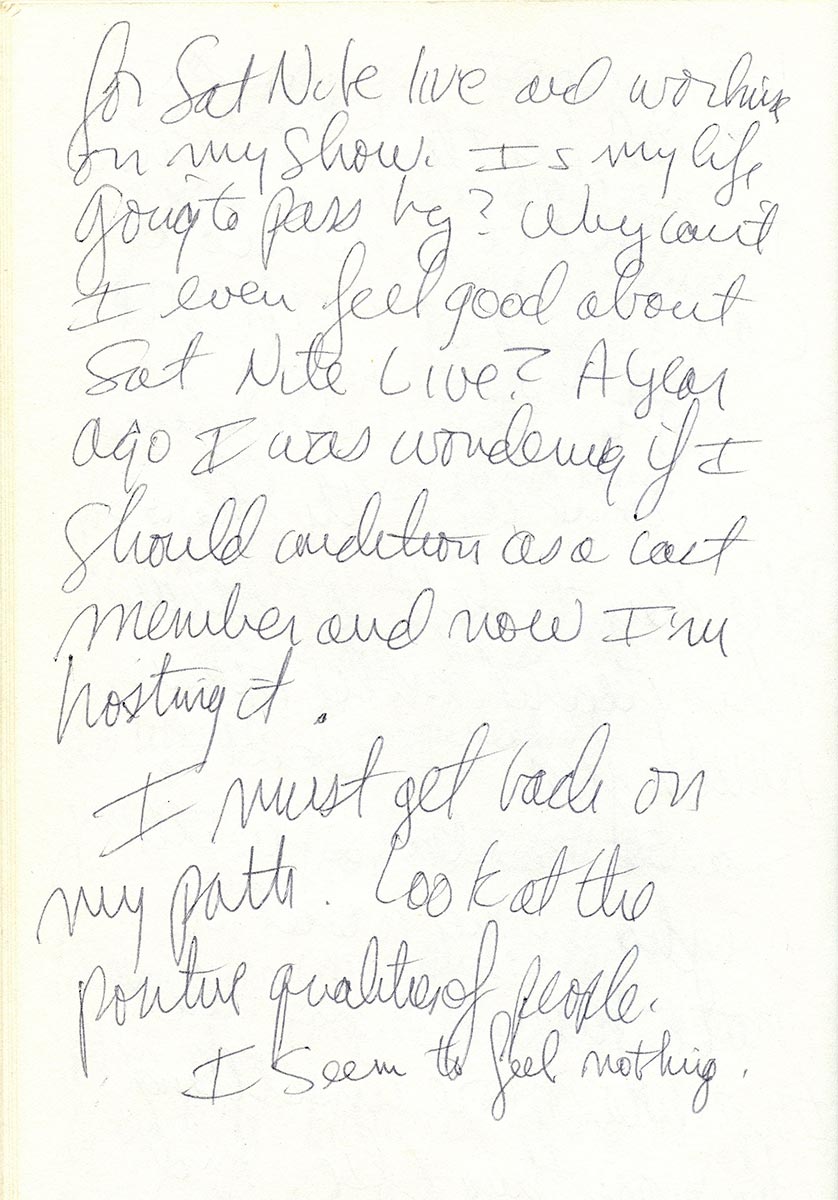 for Sat Nite live and working
on my show. Is my life
going to pass by? Why can't
I even feel good about
Sat Nite Live? A year
ago I was wondering if I
should audition as a cast
member and now I'm
hosting it.
I must get back on
my path. Look at the
positive qualities of people.
I seem to feel nothing.